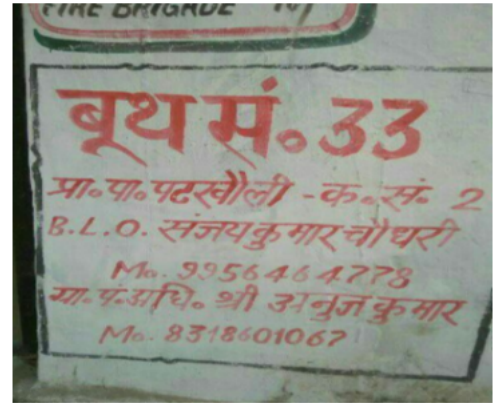 FIRE BRIGADE
बूथ सं० 33
प्रा० पा० पटखौली - क० सं० 2
B.L.O. संजय कुमार चौधरी
Mo. 9956464778
ग्रा. पं. अधि० श्री अनुज कुमार
Mo. 8318601067